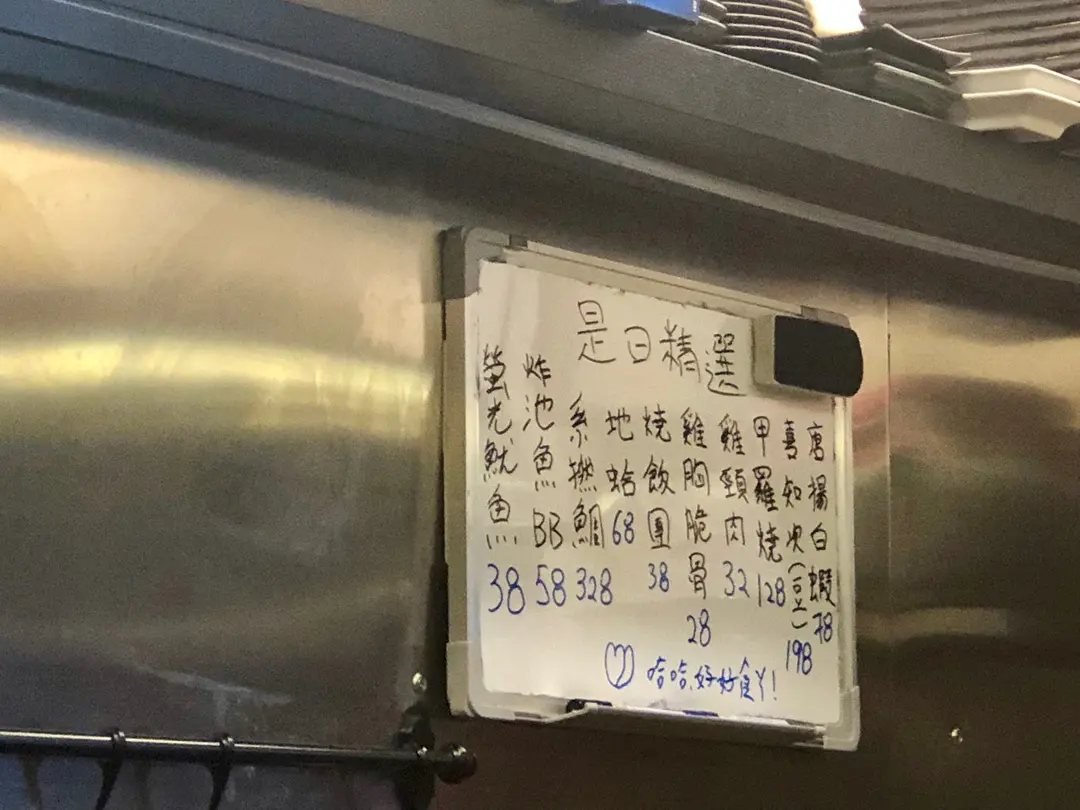 是日精選
唐揚白蝦 78
喜知次(豆) 198
甲羅燒 128
雞頸肉 32
雞胸脆骨 28
燒飯團 38
地蛤 68
糸撚鯛 328
炸池魚BB 58
螢光魷魚 38
哈哈,好好食丫!